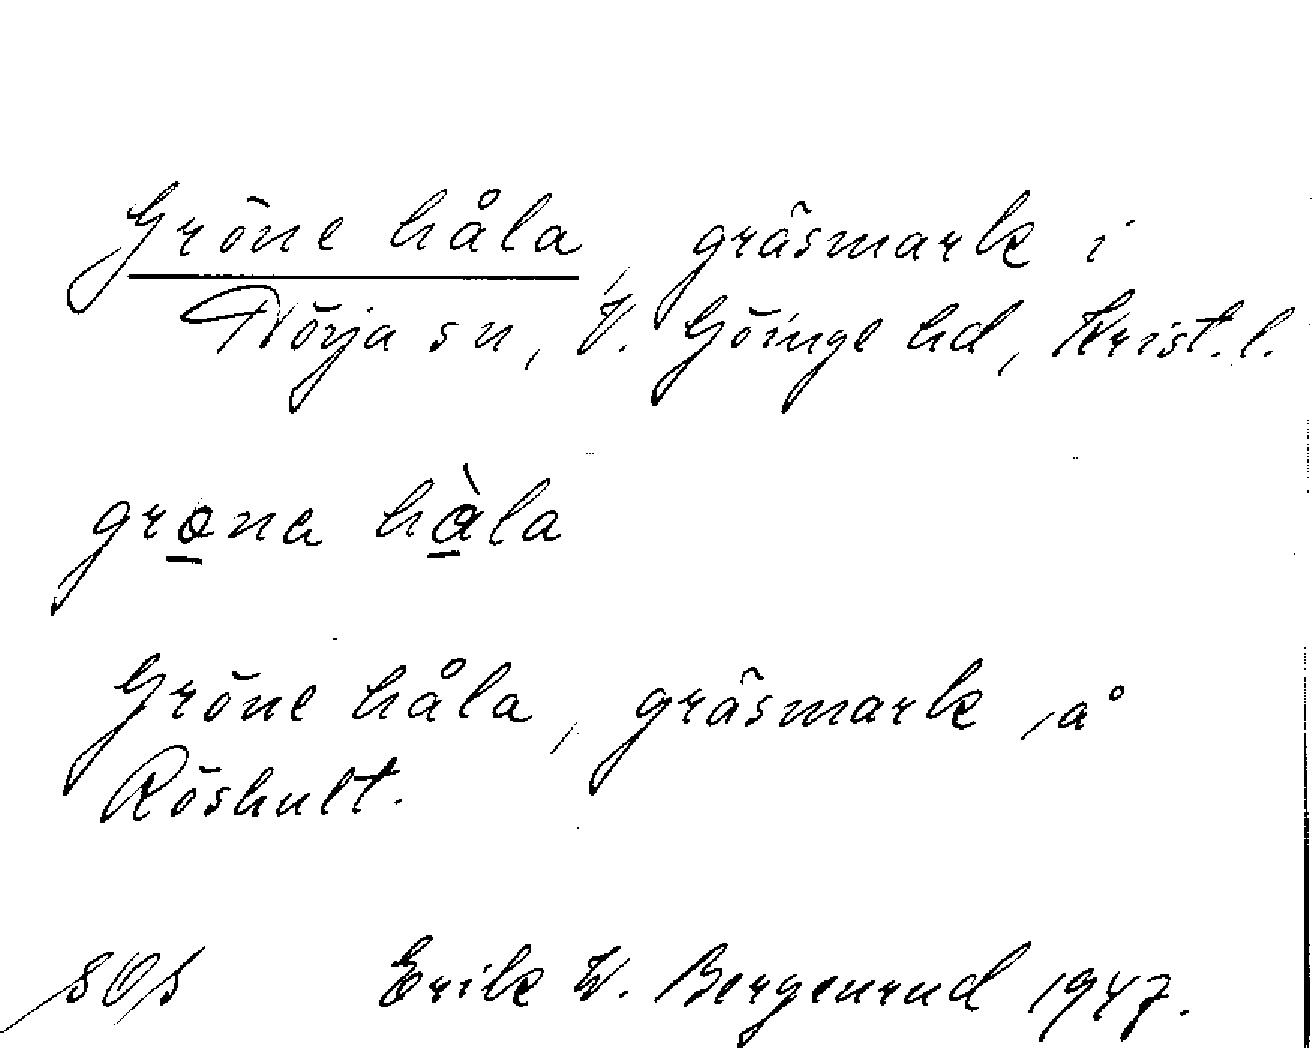 Gröne håla, gräsmark i
Nörja sn, V. Göinge hd, Krist. l.
grøna hàla
Gröne håla, gräsmark å
Röshult.
SOS Erik W. Bergenrud 1947.